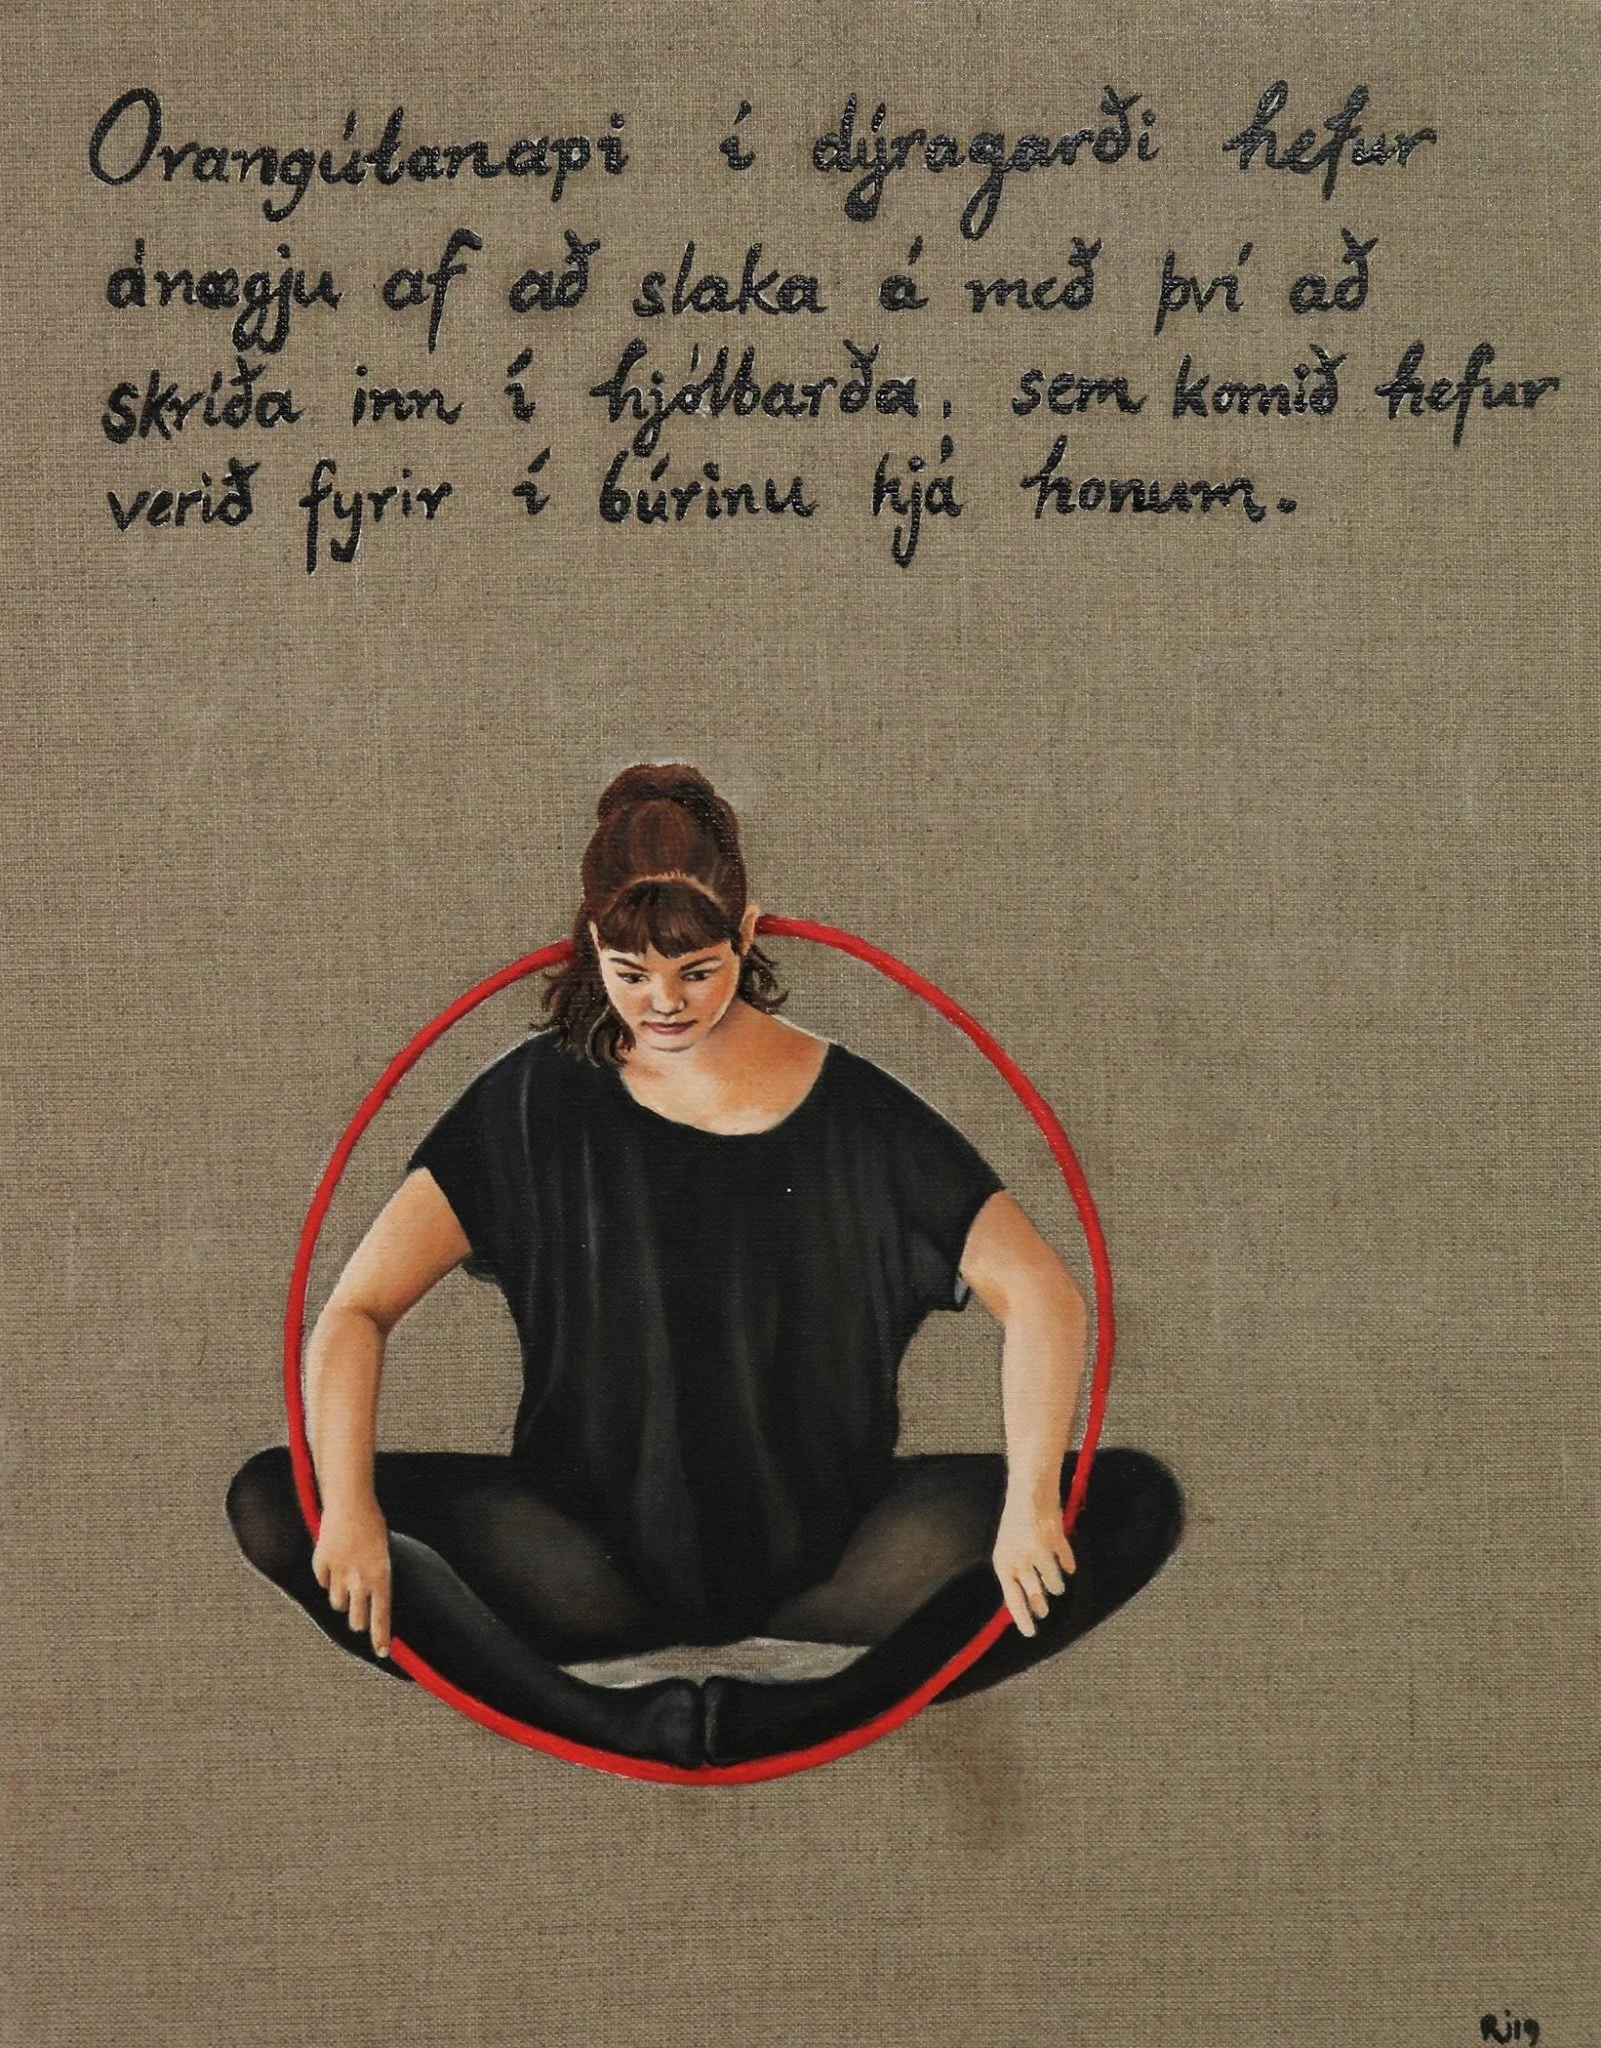 Orangútanapi í dýragarði hefur
ánægju af að slaka á með því að
skríða inn í hjólbarða, sem komið hefur
verið fyrir í búrinu hjá honum.
RJ19